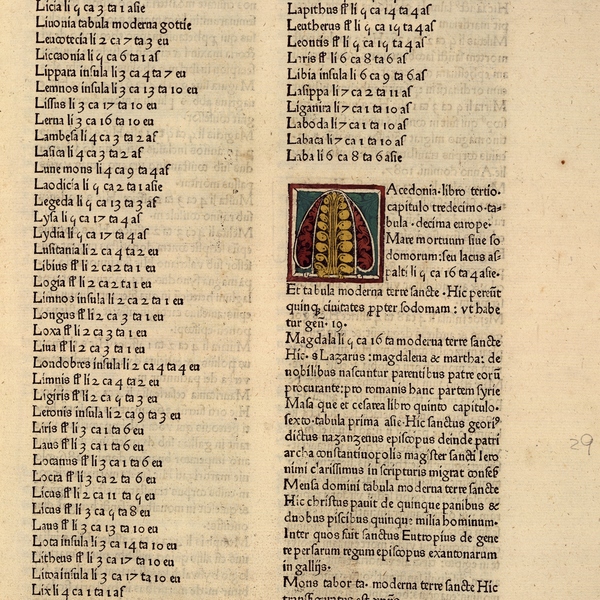 Licia li 5 ca 3 ta 1 asie
Liuonia tabula moderna gottie
Leucotecia li 2 ca 7 ta 3 eu
Liccaonia li 5 ca 6 ta 1 as
Lippara insula li 3 ca 4 ta 7 eu
Lemnos insula li 3 ca 13 ta 10 eu
Lissus li 3 ca 17 ta 10 eu
Lerna li 3 ca 16 ta 10 eu
Lambesa li 4 ca 3 ta 2 af
Lasica li 4 ca 3 ta 2 af
Lune mons li 4 ca 9 ta 4 af
Laodicia li 5 ca 2 ta 1 asie
Legeda li 5 ca 13 ta 3 as
Lysa li 5 ca 17 ta 4 as
Lydia li 5 ca 17 ta 4 as
Lusitania li 2 ca 4 ta 2 eu
Libius fl li 2 ca 2 ta 1 eu
Logia fl li 2 ca 2 ta 1 eu
Limnos insula li 2 ca 2 ta 1 eu
Longus fl li 2 ca 3 ta 1 eu
Loxa fl li 2 ca 3 ta 1 eu
Liua fl li 2 ca 3 ta 1 eu
Londobres insula li 2 ca 4 ta 4 eu
Limnis fl li 2 ca 4 ta 2 eu
Ligiris fl li 2 ca 5 ta 3 eu
Leronis insula li 2 ca 9 ta 3 eu
Liris fl li 3 ca 1 ta 6 eu
Laus fl li 3 ca 1 ta 6 eu
Locanus fl li 3 ca 1 ta 6 eu
Locra fl li 3 ca 2 ta 6 eu
Licus fl li 2 ca 11 ta 5 eu
Licus fl li 3 ca 5 ta 8 eu
Laus fl li 3 ca 13 ta 10 eu
Lota insula li 3 ca 14 ta 10 eu
Litheus fl li 3 ca 17 ta 10 eu
Litoa insula li 3 ca 17 ta 10 eu
Lix li 4 ca 1 ta 1 af
Lapithus fl li 5 ca 14 ta 4 as
Leutherus fl li 5 ca 15 ta 4 as
Leontis fl li 5 ca 15 ta 4 as
Liris fl li 6 ca 8 ta 6 as
Libia insula li 6 ca 9 ta 6 as
Lasippa li 7 ca 2 ta 11 as
Liganira li 7 ca 1 ta 10 as
Laboda li 7 ca 1 ta 10 as
Labaca li 7 ca 1 ta 10 as
Laba li 6 ca 8 ta 6 asie
MAcedonia·libro tertio·
capitulo tredecimo·ta⸗
bula·decima europe·
Mare mortuum siue so
domorum:seu lacus as⸗
palti li 5 ca 16 ta 4 asie·
Et tabula moderna terre sancte·Hic perierūt
quinq̧ ciuitates ꝓpter sodomam: vt habe
tur geñ·19·
Magdala li 5 ca 16 ta moderna terre sancte
Hic·s Lazarus:magdalena & martha: de
nobilibus nascuntur parentibus patre eorū
procurante:pro romanis hanc partem syrie
Masa que et cesarea libro quinto capitulo·
sexto·tabula prima asie·Hic sanctus geori⁹
dictus nazanzenus episcopus deinde patri
archa constantinopolis magister sancti Iero
nimi clarissimus in scripturis migrat conses
Mensa domini tabula moderna terre sancte
Hic christus pauit de quinque panibus &
duobus piscibus quinque milia hominum·
Inter quos fuit sanctus Eutropius de gene
re persarum regum episcopus exantonarum
in gallijs·
Mons tabor ta· moderna terre sancte Hic
29